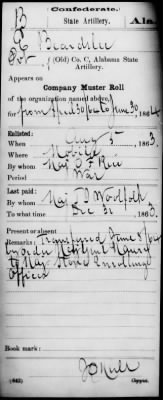 Confederate.
B
State Artillery. Ala
E Beardslee
Pvt., (Old) Co. C, Alabama State
Artillery.
Appears on
Company Muster Roll
of the organization named above,
for from April 30/64 to June 30, 1864
Enlisted:
When Aug 5, 1863.
Where Mobile
By whom Maj
Period War
Last paid:
By whom Maj Woodfolk
To what time Dec 31, 1863
Present or absent
Remarks: Transferred June
by order
to Maj Stone Enrolling
Officer
Book mark:
(642) Copyist.